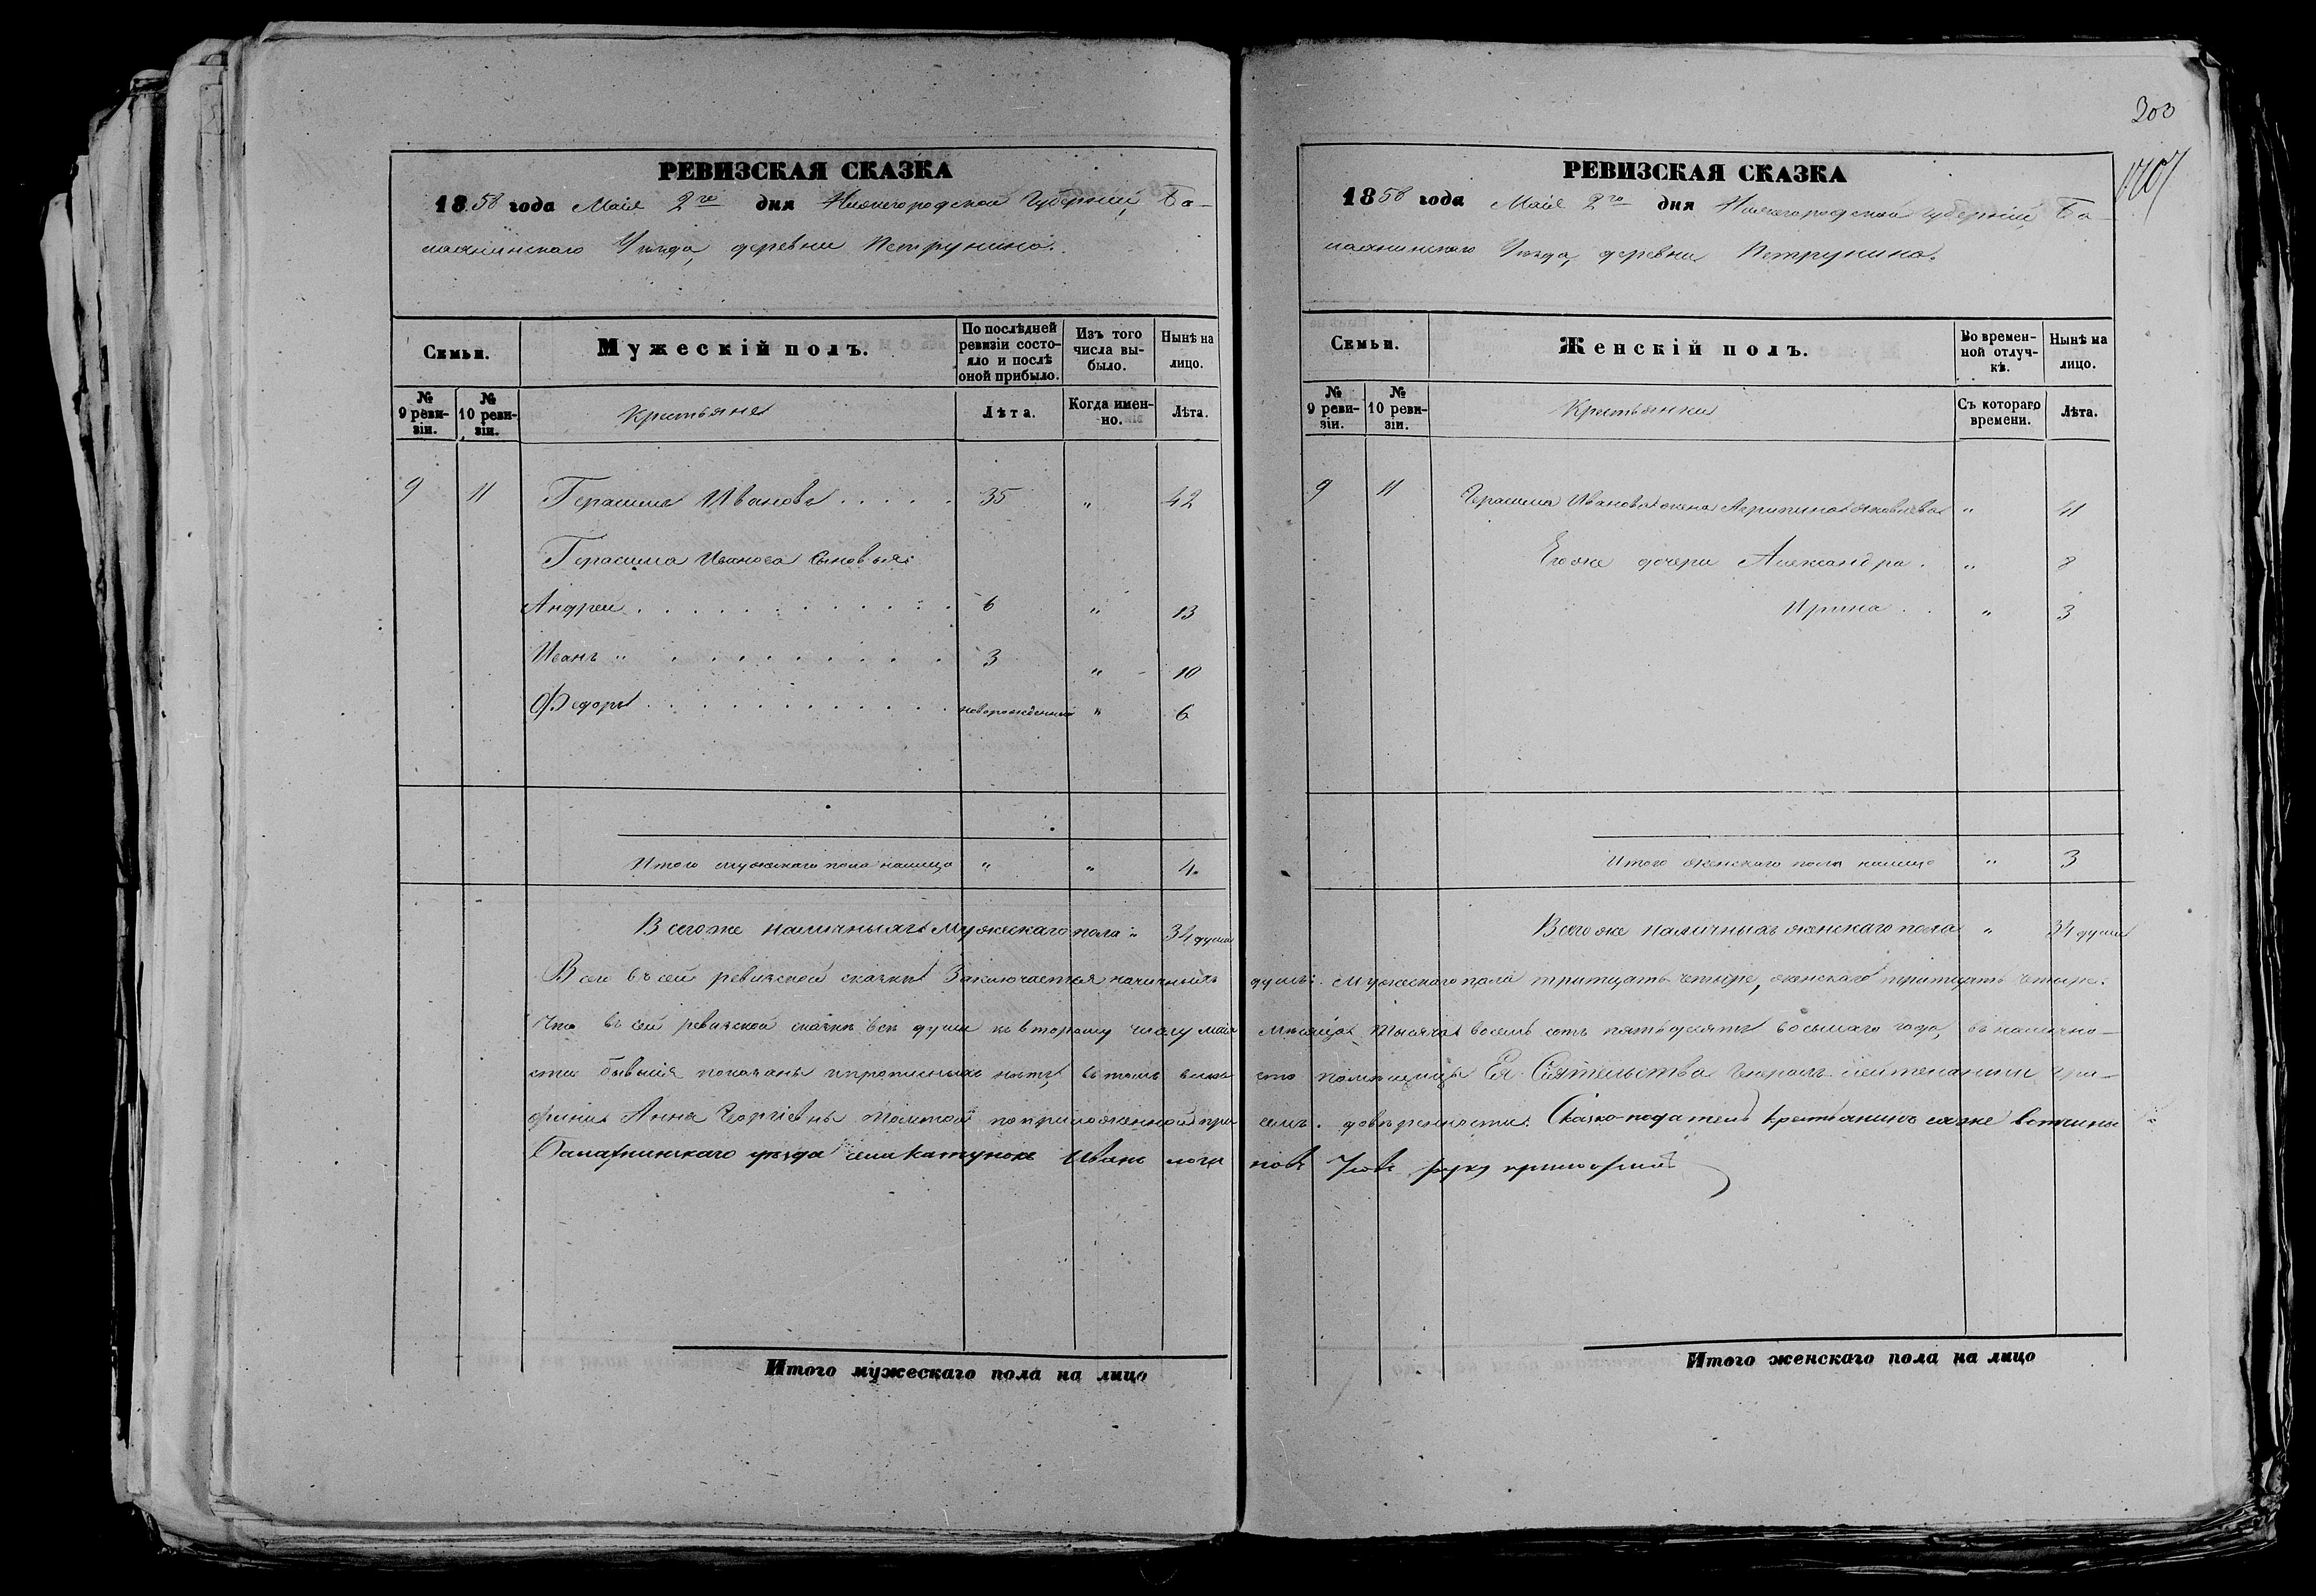 303
РЕВИЗСКАЯ СКАЗКА
1858 года Маія 2го дня Нижегородской Губерніи, Ба-
лахнинскаго Уѣзда, деревни Петрунино.
Семьи.
Мужескій полъ.
По послѣдней ревизіи состояло и послѣ оной прибыло.
Изъ того числа выбыло.
Нынѣ на лицо.
№ 9 ревизіи.
№ 10 ревизіи.
Крестьяне
Лѣта.
Когда именно.
Лѣта.
9 11 Герасимъ Ивановъ . . . . . 35 „ 42
Герасима Иванова Сыновья:
Андрей . . . . . . . . . . . . 6 „ 13
Иванъ „ . . . . . . . . . . 3 „ 10
Федоръ . . . . . . . . . . . . новорожденный „ 6
Итого мужескаго пола налицо „ „ 4.
Всего же наличныхъ мужескаго пола „ 34 души
РЕВИЗСКАЯ СКАЗКА
1858 года Маія 2го дня Нижегородской Губерніи, Ба-
лахнинскаго Уѣзда, деревни Петрунино.
Семьи.
Женскій полъ.
Во временной отлучкѣ.
Нынѣ на лицо.
№ 9 ревизіи.
№ 10 ревизіи.
Крестьянки
Съ котораго времени.
Лѣта.
9 11 Герасима Иванова жена Агрипина Яковлева „ 41
Его же дочери Александра . „ 8
Ирина . . „ 3
Итого женскаго пола налицо „ 3
Всего же наличныхъ женскаго пола „ 34 души
Всего въ сей ревизской сказкѣ Заключается наличныхъ душъ: мужескаго пола тритцать четыре, женскаго тритцать четыре.
Что въ сей ревизской сказкѣ всѣ души къ второму числу мая мѣсяца Тысяча восемь сотъ пятьдесятъ восьмаго года, въ налично-
сти бывшія показаны и прописныхъ нѣтъ, въ томъ вмѣсто помѣщицы Ея Сіятельства Генералъ лейтенантши Гра-
фини Анны Георгіевны Толстой по приложенной при семъ довѣренности. Сказко-податель крестьянинъ еяже вотчины
Балахнинскаго уѣзда села Катунокъ Иванъ руку приложилъ
Итого мужескаго пола на лицо
Итого женскаго пола на лицо